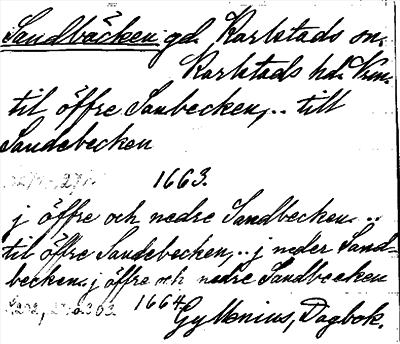 Sandbäcken gd. Karlstads sn.
Karlstads hd. Vrm.
til öffre Sanbecken, .. till
Sandebecken
1663.
j öffre och nedre Sandbecken. ..
til öffre Sandebecken, .. j neder Sand-
becken. j öffre och nedre Sandbecken
1664
Gyllenius, Dagbok.